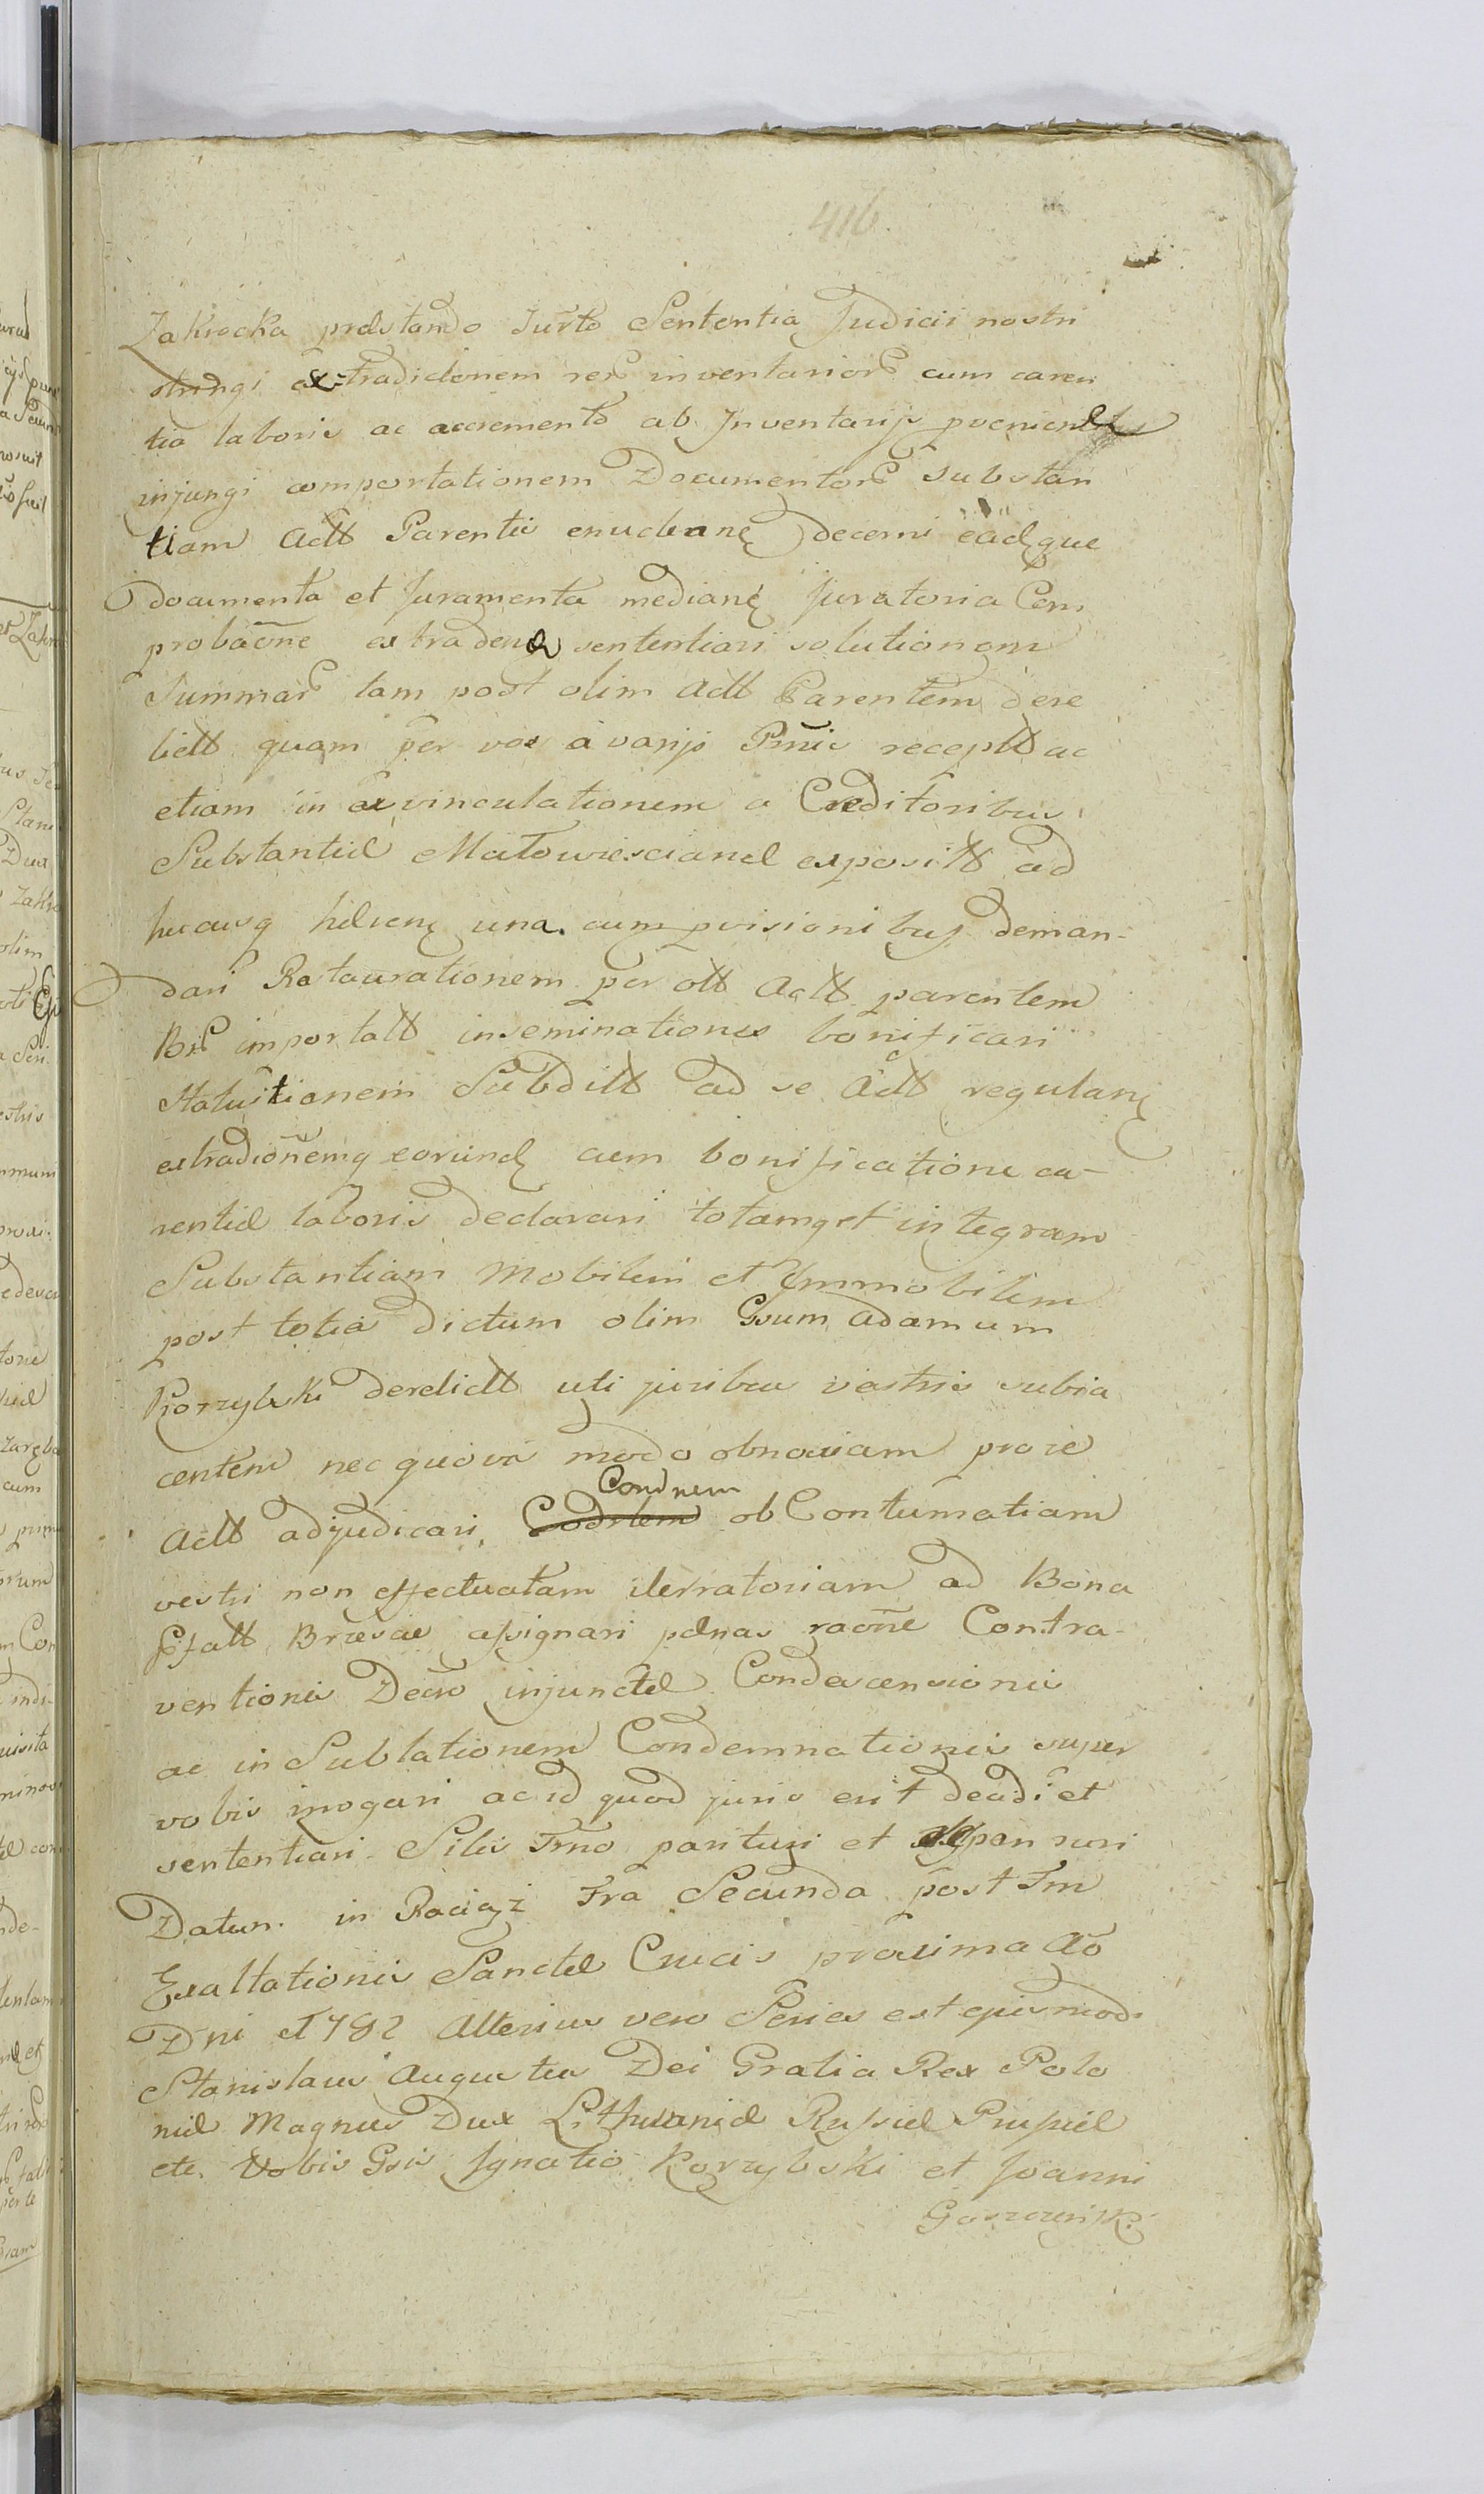 416
Zakrocka præstando Jurto Sententia Judicii nostri
stringi extradidonem rer inventarior cum caren
tia laboris ac accremento ab Jnventarijs pvenientes
injungi comportationem Documentor substan
tiam Actt Parentis enuclean decerni eadque
documenta et Juramenta median Juratoria Com
probaõne extraden sententiari solutionem
Summar tam post olim Actt Parentem dere
lictt quam per vos à varijs Pmis receptt ac
etiam in exvinculationem a Creditoribus
Substantiæ Matowiescianæ expositt ad
hucusq hilien una cum pvisionibus deman-
dari Restaurationem per ott Actt parentem
Br importatt inseminationes bonificari
Statuitionem Subditt ad se Actt regulan
extradiõnemq eorund cum bonificatione ca-
rentiæ laboris declarari totamq et integram
Substantiam Mobilem et Jmmobilem
post totia dictum olim Gsum Adamum
Korzybski derelictt uti juribus vestris subia
centem nec quovi modo obnoxiam pro re
Actt adjudicari, Condnem ob Contumatiam
vestri non effectuatam iterratoriam ad Bona
Pfatt Brzescie assignari pænas raõne Contra-
ventionis Decro injunctæ Condescensionis
ac in Sublationem Condemnationis super
vobis irrogari ac id quod juris erit decidi et
sententiari. Sitis Trmo parituri et responsuri
Datum. in Raciąż Fra Secunda post Fm
Exaltationis Sanctæ Crucis proxima Aõ
Dni 1782 Alterius vero Series est ejusmodi
Stanislaus Augustus Dei Gratia Rex Polo
niæ Magnus Dux Lithuaniæ Russiæ Prussiæ
etc. Vobis Gsis Jgnatio Korzybski et Joanni